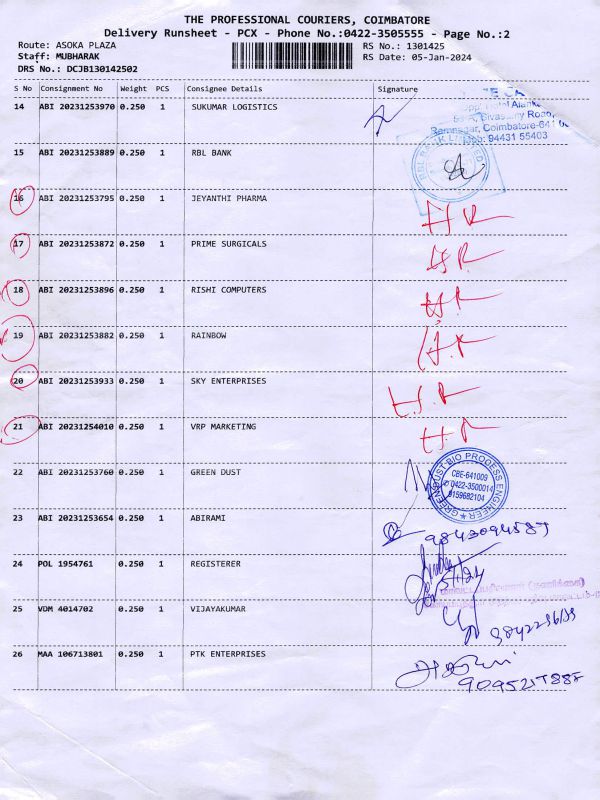 THE PROFESSIONAL COURIERS, COIMBATORE
Delivery Runsheet - PCX - Phone No.:0422-3505555 - Page No.:2
Route: ASOKA PLAZA RS No.: 1301425
Staff: MUBHARAK RS Date: 05-Jan-2024
DRS No.: DCJB130142502
S No Consignment No Weight PCS Consignee Details Signature
14 ABI 20231253970 0.250 1 SUKUMAR LOGISTICS
Ramnagar, Coimbatore-641
94431 55403
15 ABI 20231253889 0.250 1 RBL BANK
16 ABI 20231253795 0.250 1 JEYANTHI PHARMA H R
17 ABI 20231253872 0.250 1 PRIME SURGICALS H R
18 ABI 20231253896 0.250 1 RISHI COMPUTERS H R
19 ABI 20231253882 0.250 1 RAINBOW H R
20 ABI 20231253933 0.250 1 SKY ENTERPRISES H R
21 ABI 20231254010 0.250 1 VRP MARKETING H R
22 ABI 20231253760 0.250 1 GREEN DUST
GREEN DUST BIO PROCESS ENGINEER
CBE-641009
0422-3500014
9159682104
23 ABI 20231253654 0.250 1 ABIRAMI
24 POL 1954761 0.250 1 REGISTERER
25 VDM 4014702 0.250 1 VIJAYAKUMAR
26 MAA 106713801 0.250 1 PTK ENTERPRISES